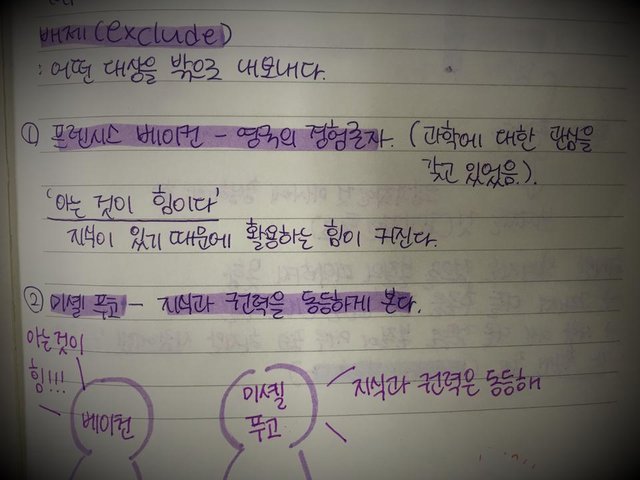 배제(exclude)
: 어떤 대상을 밖으로 내보내다.
① 프렌시스 베이컨 - 영국의 경험론자. (과학에 대한 관심을
갖고 있었음.).
'아는 것이 힘이다'
지식이 있기 때문에 활용하는 힘이 커진다.
② 미셸 푸코 - 지식과 권력을 동등하게 본다.
아는것이
힘!!!
베이컨
미셸
푸코
지식과 권력은 동등해